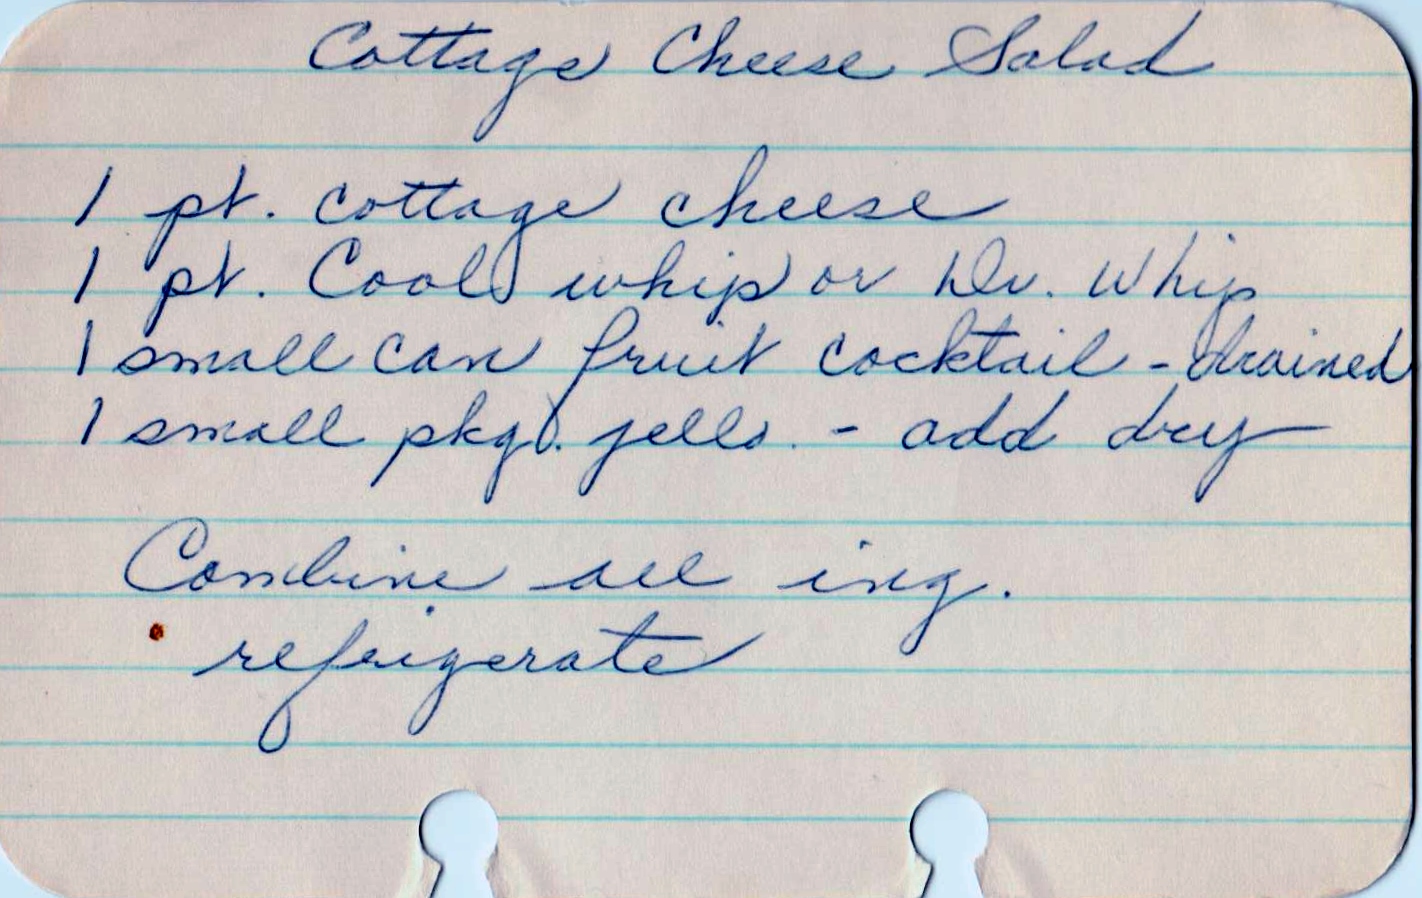 Cottage Cheese Salad
1 pt. cottage cheese
1 pt. Cool whip or Whip
1 small can fruit cocktail - drained
1 small pkg. jello. - add dry
Combine all ing.
refrigerate